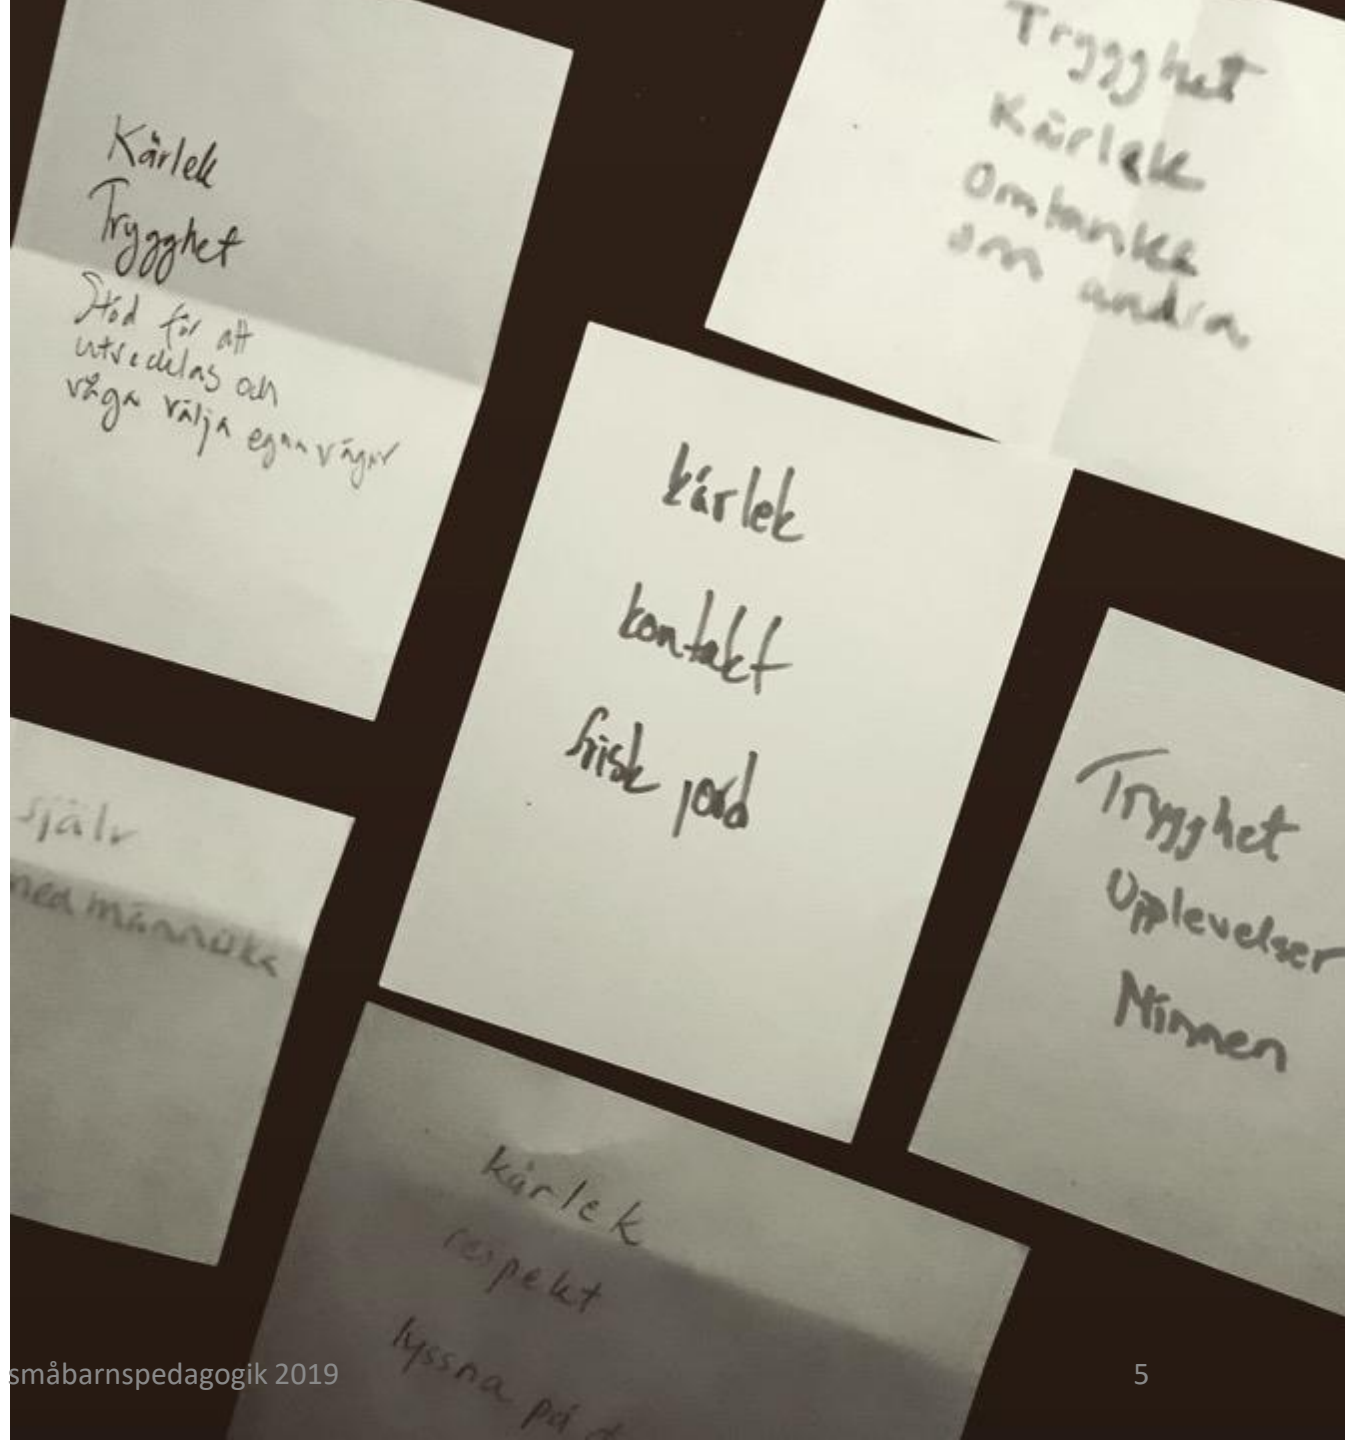 Kärlek
Trygghet
Stöd för att
utvecklas och
våga välja egna vägar
Trygghet
Kärlek
Omtanke
om andra
kärlek
kontakt
frisk jord
Trygghet
Upplevelser
Minnen
själv
medmänniska
kärlek
respekt
lyssna på
småbarnspedagogik 2019
5